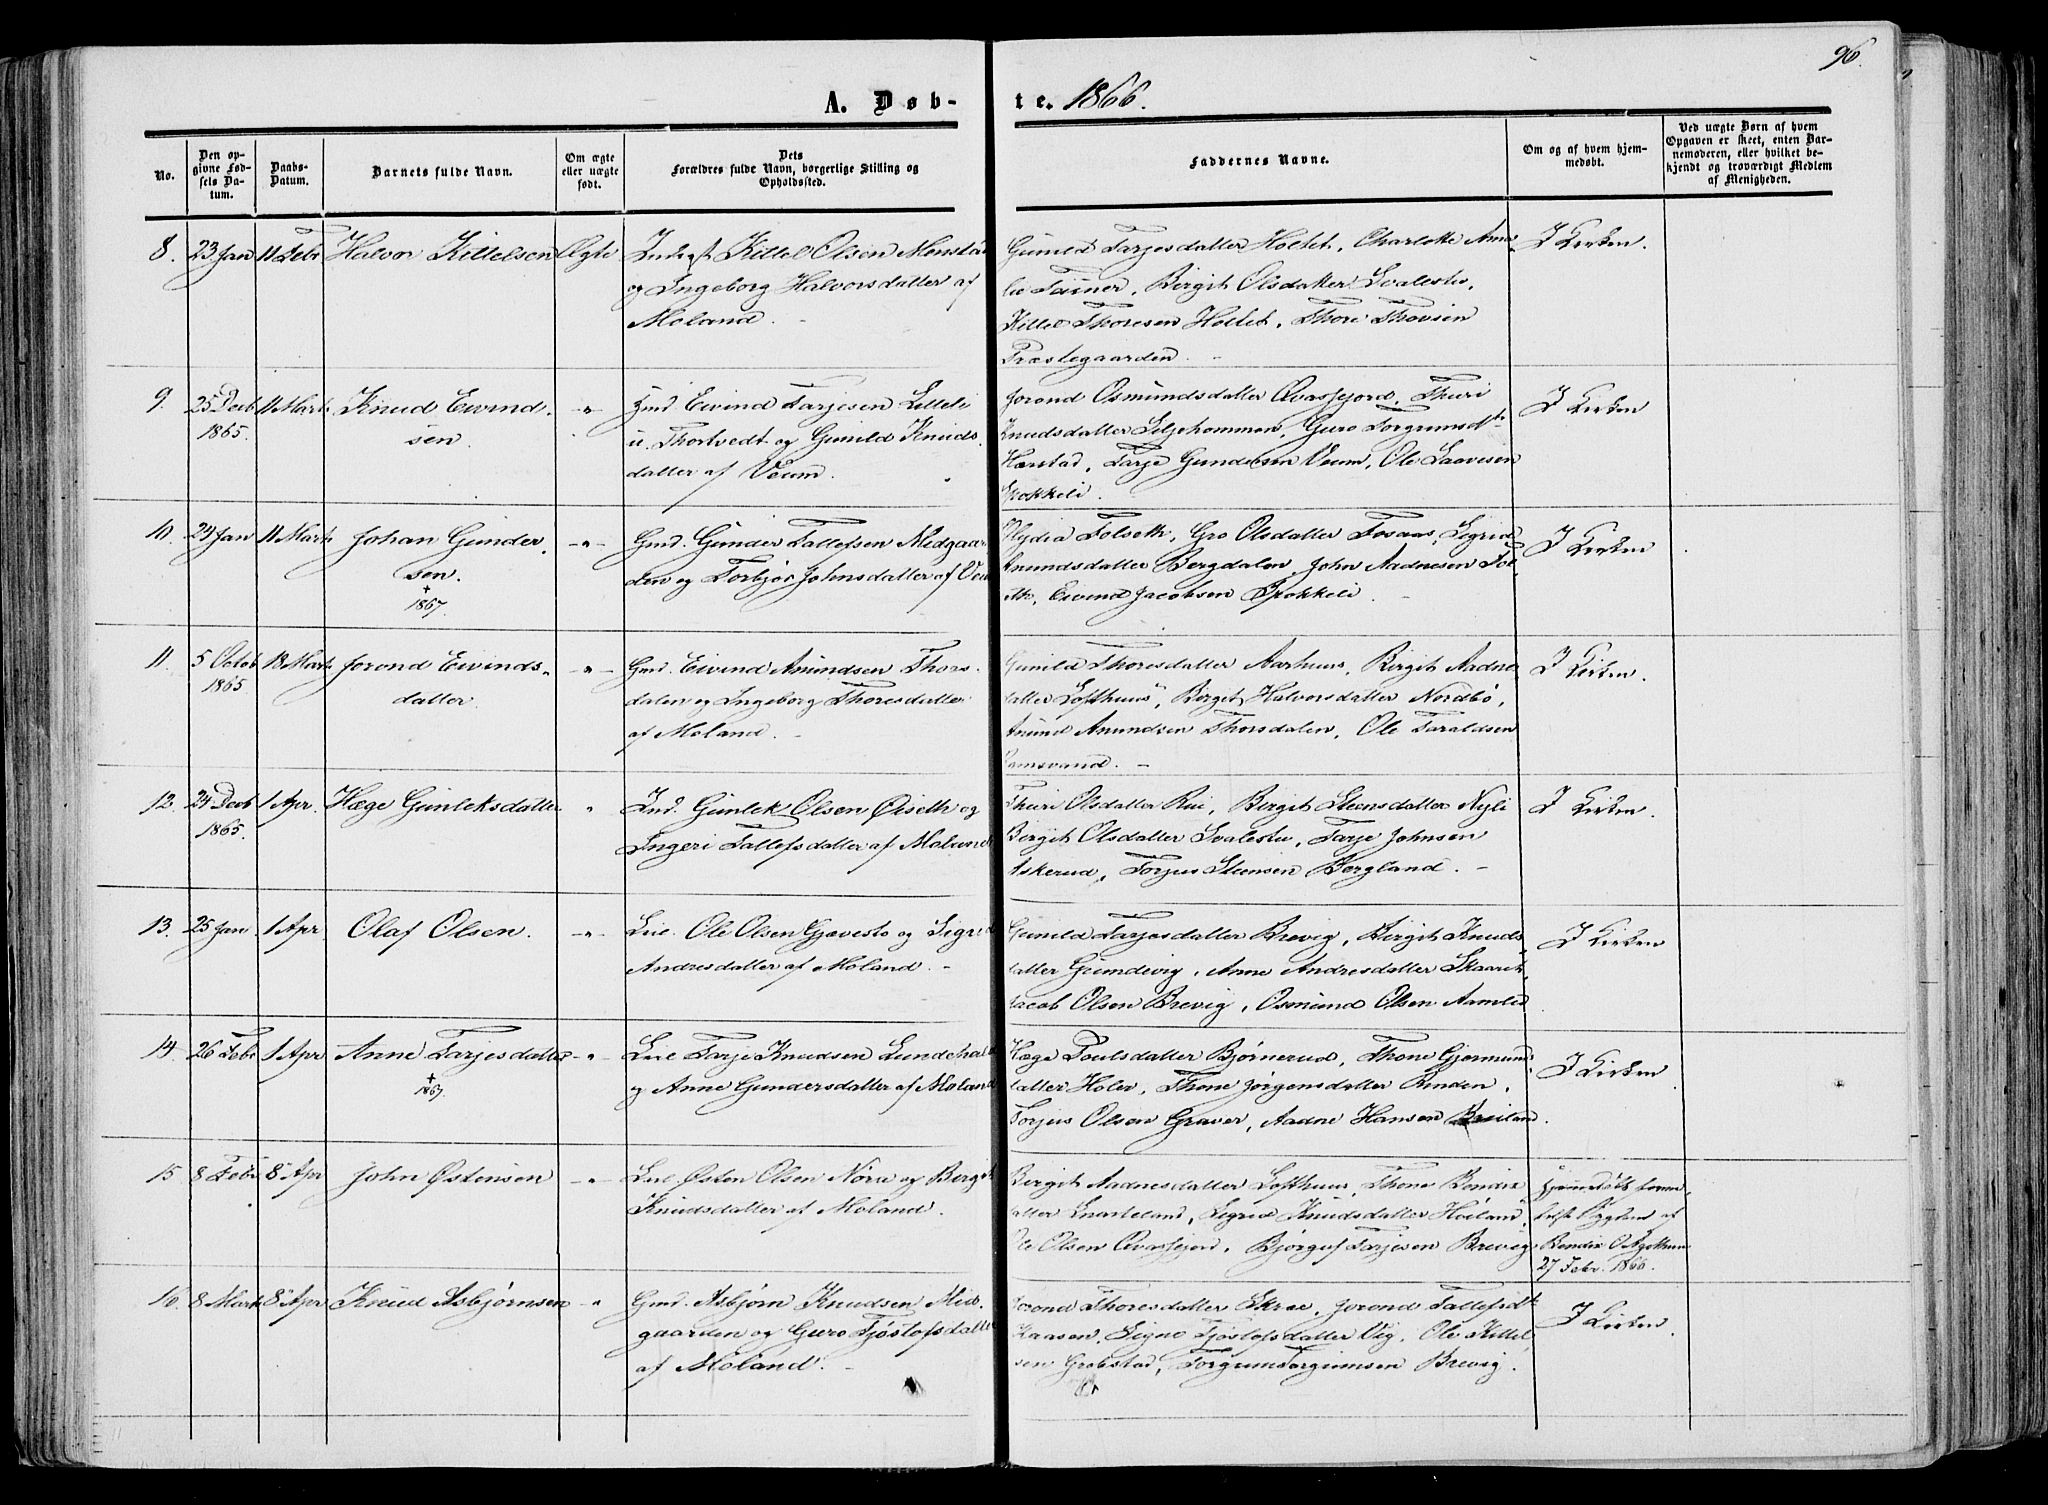 96.
A. Døb-te. 1866.
No.
Den op-
givne Fød-
sels Da-
tum.
Daabs-
Datum.
Barnets fulde Navn.
Om ægte
eller uægte
født.
Dets
Forældres fulde Navn, borgerlige Stilling og
Opholdssted.
Faddernes Navne.
Om og af hvem hjem-
medøbt.
Ved uægte Børn af hvem
Opgaven er skeet, enten Bar-
nemoderen, eller hvilket be-
kjendt og troværdigt Medlem
af Menigheden.
8. 23 Jan 11 Febr Halvor Kittelsen Ægte
Kittel Olsen Monstad
og Ingeborg Halvorsdatter af
Moland.
Gunild Tarjesdatter Holtet, Charlotte Ama
lie Birgit Olsdatter Svalestu,
Kittel Thoresen Holtet, Thore
Præstegaarden.
I Kirken.
9. 25 Decb 11 Marts Knud Eivind-
1865. sen.
Gmd. Eivind Tarjesen Litteli
u. Thortvedt og Gunild Knuds-
datter af Veum.
Jorond Osmundsdatter Qvasfjord, Thuri
Knudsdatter Guro Torgrimsdtr
Tarje Gundersen Veum, Ole Saavesen
Spokkeli.
I Kirken
10. 24 Jan 11 Marts Johan Gunder-
sen.
+
1867.
Gmd. Gunder Tallefsen Midgaar-
den og Torbjør Johnsdatter af Veum
Folseth, Gro Olsdatter Fosaas, Sigrid
Anundsdatter Bergdalen, John Aadnesen Fol
eth, Eivind Jacobsen Spokkeli.
I Kirken
11. 5 Octob 18 Marts Jorond Eivinds-
1865 datter.
Gmd. Eivind Anundsen Thors-
dalen og Ingeborg Thoresdatter
af Moland.
Gunild Thoresdatter Aarhuus, Birgit Aadnes
datter Lofthuus, Birgit Halvorsdatter Nordbø,
Anund Anundsen Thorsdalen, Ole Taraldsen
Ramsvand.
I Kirken.
12. 24 Decb 1 Apr. Hæge Gunleksdatter
1865.
Ind. Gunlek Olsen Øiseth og
Ingeri Tallefsdatter af Moland
Thuri Olsdatter Rui, Birgit Steensdatter Nyli
Birgit Olsdatter Svalestu, Tarje Johnsen
Askerud, Torjus Steensen Bergland.
I Kirken.
13. 25 Jan. 1 Apr. Olaf Olsen.
Leil. Ole Olsen Gjavesto og Sigrid
Andresdatter af Moland.
Gunild Tarjesdatter Brevig, Birgit Knuds
datter Grundevig, Anne Andresdatter
Jacob Olsen Brevig, Osmund Olsen Aamlid
I Kirken
14. 26 Febr 1 Apr Anne Tarjesdatter
+
1867.
Leil. Tarje Knudsen
og Anne Gundersdatter af Moland
Hæge Poulsdatter Bjørnerud, Thone Gjermunds
datter Holen, Thone Jørgensdatter Rinden,
Torjus Olsen Graver, Aadne Hansen Breiland.
I Kirken
15 8 Febr 8 Apr John Østensen
Leil. Østen Olsen Nora og Bergit
Knudsdatter af Moland.
Birgit Aadnesdatter Lofthuus, Thone Bendix
datter Snarteland, Sigrid Knudsdatter Høiland,
Ole Olsen Qvasfjord, Bjørguf Tarjesen Brevig
Hjemmedøbt forme-
delst Sygdom af
Bendix O. Agethun
27 Febr. 1866.
16. 8 Marts 8 Apr Knud Asbjørnsen
Gmd. Asbjørn Knudsen Mid-
gaarden og Guro Tjøstofsdatter
af Moland.
Jorond Thoresdatter Skrae, Jorond Tallefsdtr
Kaasen, Signe Tjøstofsdatter Vig, Ole Kittel-
sen Grobstad, Torgrim Torgrimsen Brevig.
I Kirken.